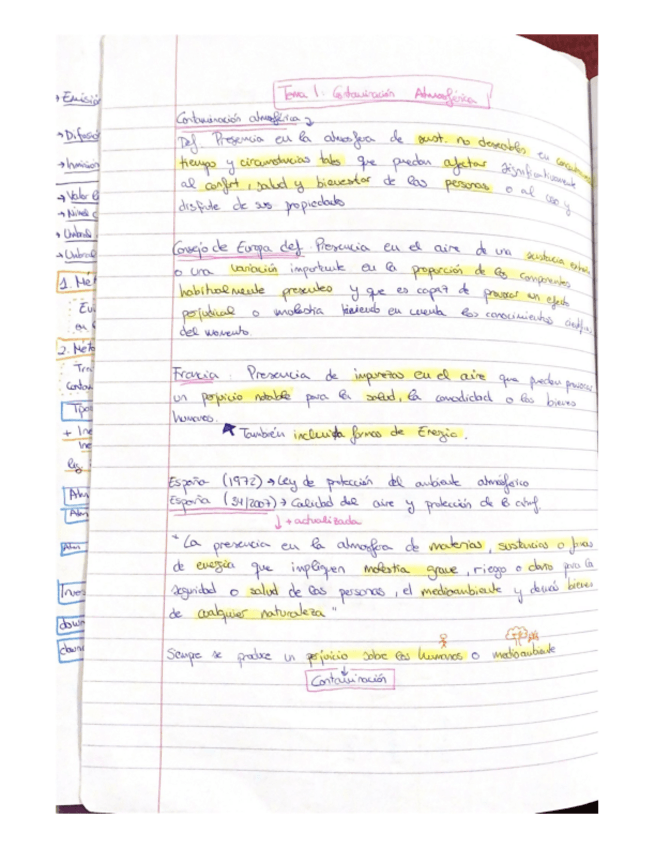 Tema 1: Contaminación Atmosférica
Contaminación atmosférica
Def. Presencia en la atmosfera de sust. no deseables en
tiempo y circunstancias tales que puedan afectar significativamente
al confort, salud y bienestar de las personas o al uso y
disfute de sus propiedades
Consejo de Europa def. Presencia en el aire de una sustancia
o una variación importante en la proporción de los componentes
habitualmente presentes y que es capaz de provocar un efecto
perjudicial o molestia teniendo en cuenta los conocimientos
del momento.
Francia. Presencia de impurezas en el aire que puedan provocar
un perjuicio notable para la salud, la comodidad o los bienes
humanos.
También incluida formas de Energía.
España (1972) → Ley de protección del ambiente atmosférico
España (34/2007) → Calidad del aire y protección de la atmf.
↓ + actualizada
"La presencia en la atmosfera de materias, sustancias o formas
de energía que impliquen molestia grave, riesgo o daño para la
seguridad o salud de las personas, el medioambiente y demás bienes
de cualquier naturaleza"
Siempre se produce un perjuicio sobre los humanos o medioambiente
Contaminación
→ Emisión
→ Difusió
→ Inmision
→ Valor
→ Nivel
→ Umbral
→ Umbral
1. Mét
2. Méto
Tipo